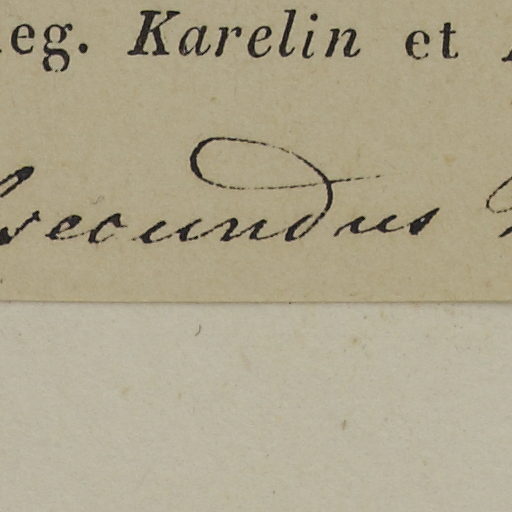 leg. Karelin et
secundus